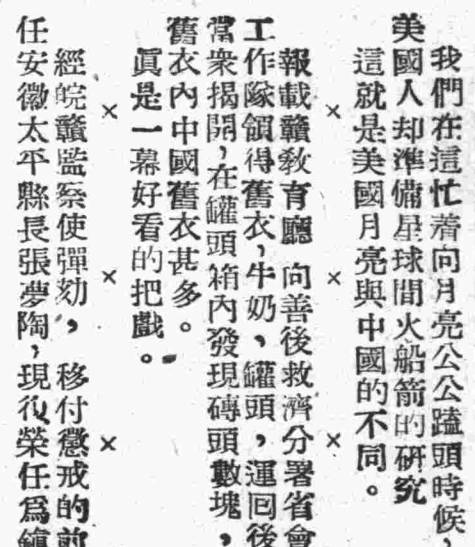 我們在這忙着向月亮公公蹱頭時候，
美國人却準備星球間火船箭的硏究
這就是美國月亮與中國的不同。
× × ×
報載贛敎育廳向善後救濟分署省會
工作隊領得舊衣，牛奶、罐頭，運回後
當衆揭開，在罐頭箱內發現磚頭數塊，
舊衣內中國舊衣甚多。
眞是一幕好看的把戲。
× × ×
經皖贛監察使彈劾，移付懲戒的前
任安徽太平縣長張夢陶，現復榮任爲